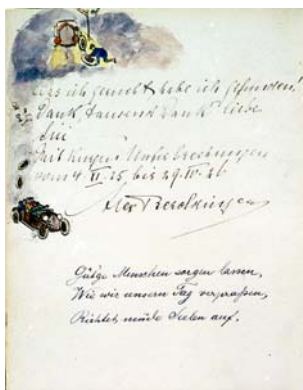 Was ich gesucht, habe ich gefunden.
Dank, tausend Dank liebe
Mit Unterbrechungen
vom 4. II. 25 bis 29. IV. 26
Gütge Menschen sorgen lassen,
Wie wir unsern Tag verprassen,
Richtet müde Seelen auf.